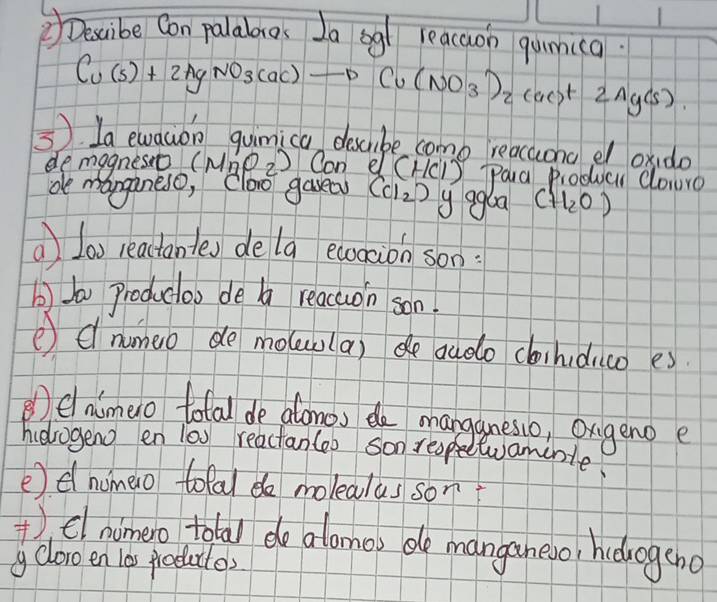 2) Describe Con palabras la sgt reacción química.
Cu(s) + 2AgNO3(ac) → Cu(NO3)2(ac)+ 2Ag(s).
3). La ecuación química describe como reacciona el oxido
de magneseo (MnO2) Con el (HCl) Para Producir cloruro
de manganeso, cloro gaseas (Cl2) y agua (H2O)
a) los reactantes de la ecuación son:
b) los Productos de la reacción son.
c) el numero de moleculas de acido clorhidrico es.
d) el número total de atomos de manganesio, oxigeno e
hidrogeno en los reactantes son respectivamente.
e) el número total de moleculas son:
f) el número total de atomos de manganeso, hidrogeno
y cloro en los productos.